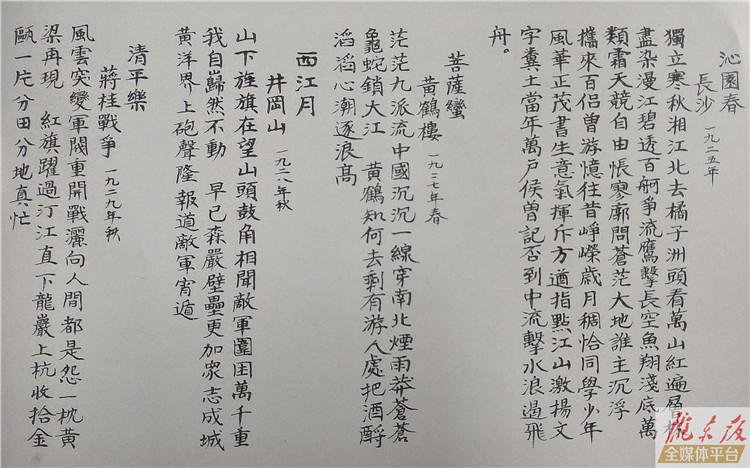 沁園春
長沙 一九二五年
獨立寒秋湘江北去橘子洲頭看萬山紅遍層林
盡染漫江碧透百舸爭流鷹擊長空魚翔淺底萬
類霜天競自由悵寥廓問蒼茫大地誰主沉浮
攜來百侶曾游憶往昔崢嶸歲月稠恰同學少年
風華正茂書生意氣揮斥方遒指點江山激揚文
字糞土當年萬戶侯曾記否到中流擊水浪遏飛
舟。
菩薩蠻
黃鶴樓 一九二七年春
茫茫九派流中國沉沉一線穿南北煙雨莽蒼蒼
龜蛇鎖大江 黃鶴知何去剩有游人處把酒酹
滔滔心潮逐浪高
西江月
井岡山 一九二八年秋
山下旌旗在望山頭鼓角相聞敵軍圍困萬千重
我自歸然不動 早已森嚴壁壘更加眾志成城
黃洋界上砲聲隆報道敵軍宵遁
清平樂
蔣桂戰爭 一九二九年秋
風雲突變軍閥重開戰灑向人間都是怨一枕黃
梁再現 紅旗躍過汀江直下龍巖上杭收拾金
甌一片分田分地真忙
全媒体平台